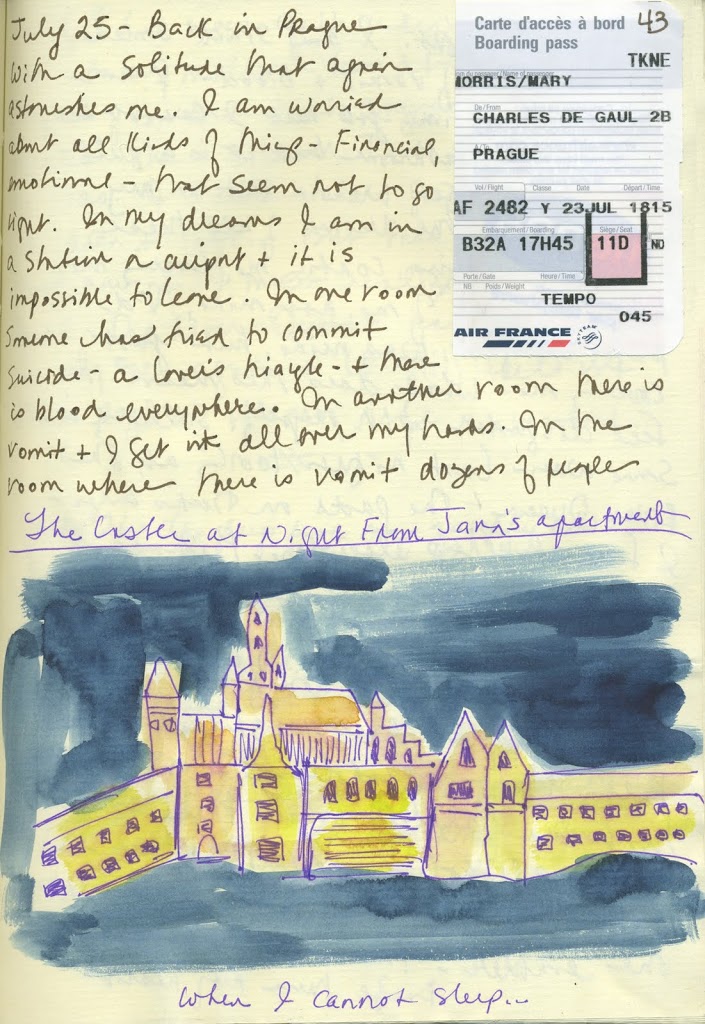 July 25 - Back in Prague
with a solitude that again
astonishes me. I am worried
about all kinds of things - Financial,
emotional - that seem not to go
right. In my dreams I am in
a station or airport + it is
impossible to leave. In one room
someone has tried to commit
suicide - a lover's triangle - + there
is blood everywhere. In another room there is
vomit + I get it all over my hands. In the
room where there is vomit dozens of people
43
Carte d'accès à bord
Boarding pass
TKNE
MORRIS/MARY
De/From
CHARLES DE GAUL 2B
PRAGUE
Vol/Flight Classe Date Départ/Time
AF 2482 Y 23JUL 1815
Embarquement/Boarding Siège/Seat
B32A 17H45 11D NO
Porte/Gate Heure/Time
NB Poids/Weight
TEMPO
045
AIR FRANCE
SKYTEAM
The Castle at Night From Jana's apartment
When I cannot sleep...